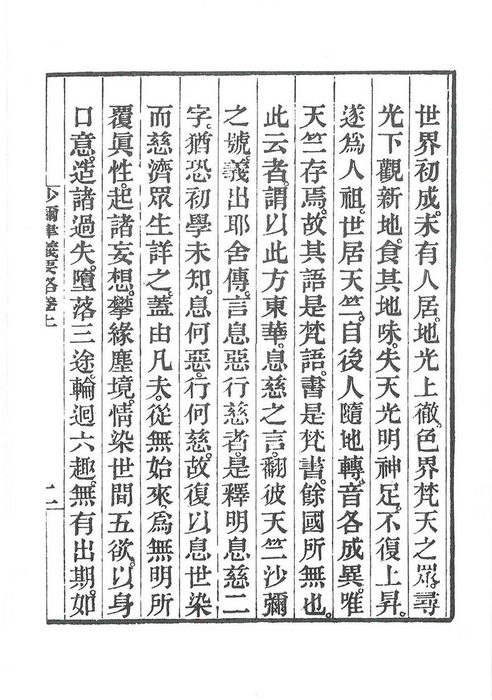 世界初成。未有人居。地光上徹。色界梵天之眾。尋
光下觀新地。食其地味。失天光明神足。不復上昇。
遂爲人祖。世居天竺。自後人隨地轉。音各成異。唯
天竺存焉。故其語是梵語。書是梵書。餘國所無也。
此云者。謂以此方東華。息慈之言。翻彼天竺沙彌
之號。義出耶舍傳。言息惡行慈者。是釋明息慈二
字。猶恐初學未知。息何惡。行何慈。故復以息世染
而慈濟眾生詳之。蓋由凡夫。從無始來。爲無明所
覆眞性。起諸妄想。攀緣塵境。情染世間五欲。以身
口意。造諸過失。墮落三途。輪迴六趣。無有出期。如
沙彌律儀要略卷上 二